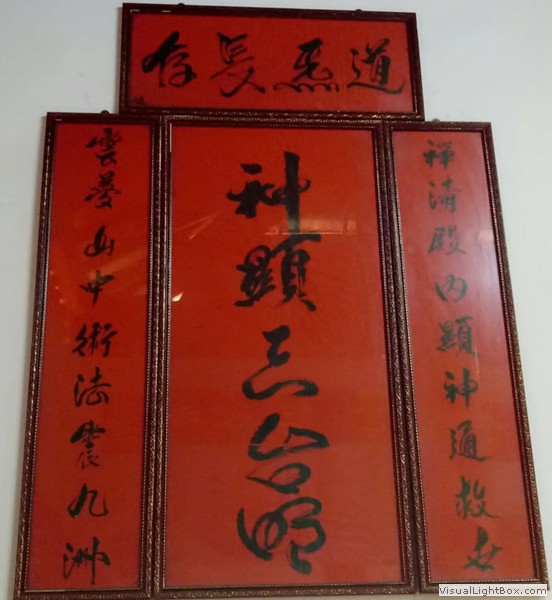 道炁長存
禪清殿內顯神通救世
神顯三台明
雲夢山中術法震九洲
VisualLightBox.com